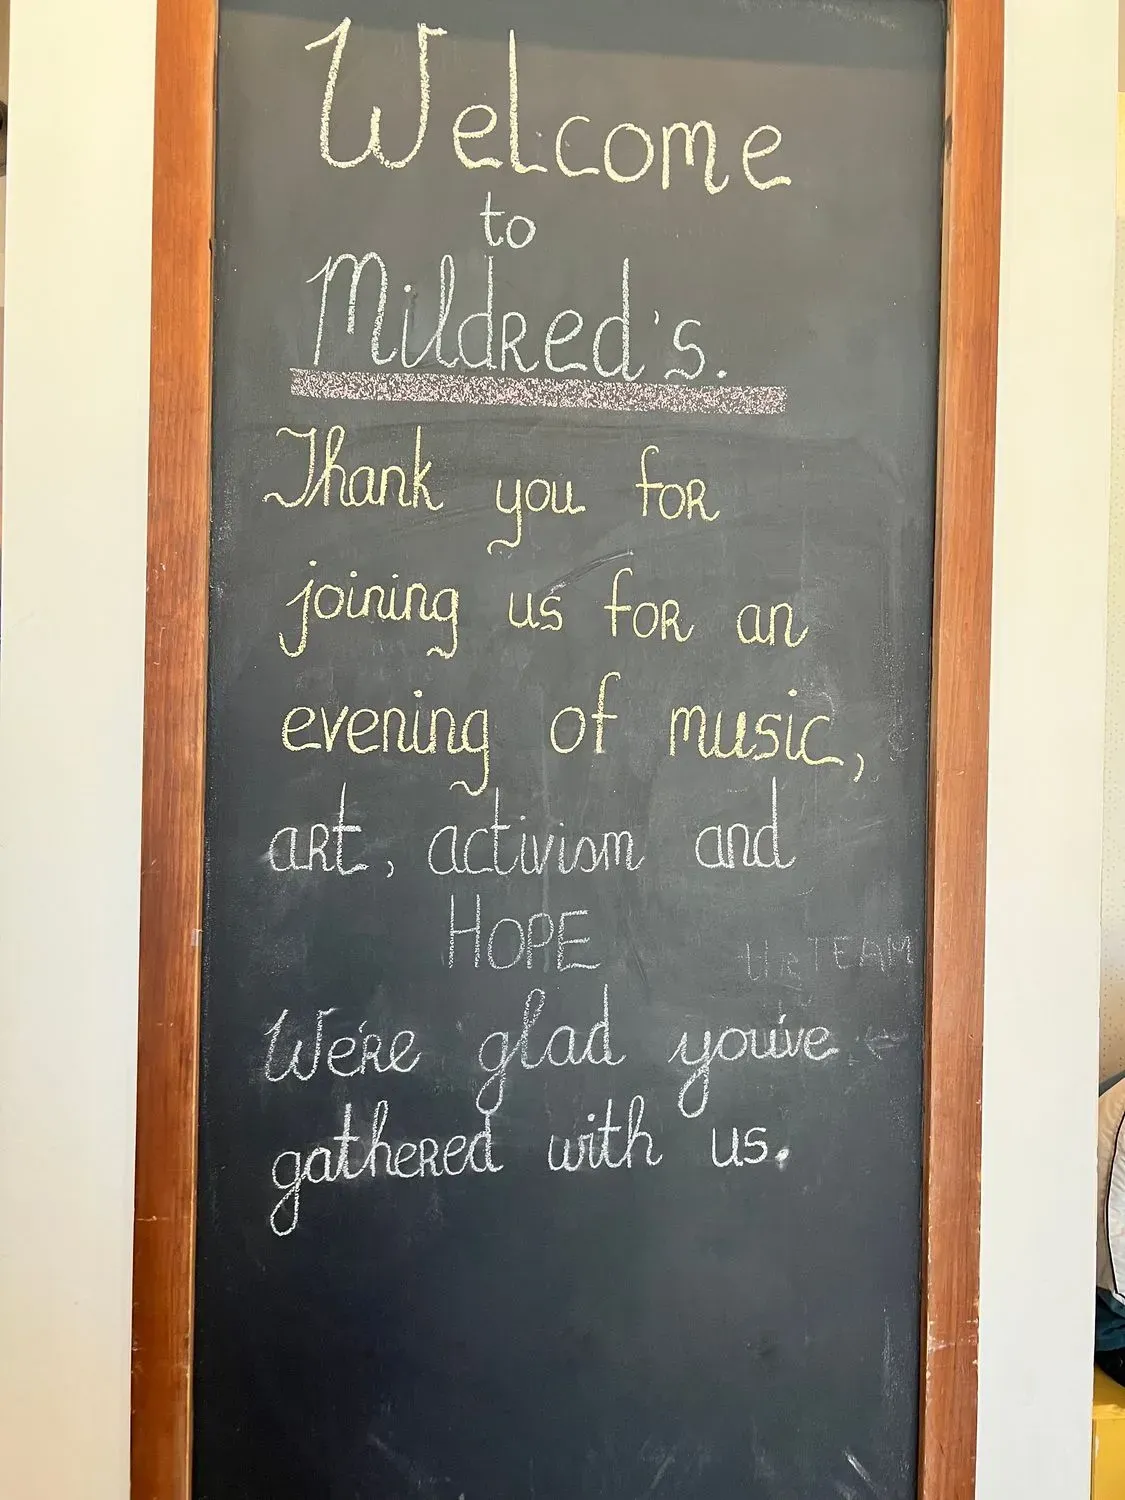 Welcome
to
Mildred's.
Thank you for
joining us for an
evening of music,
art, activism and
HOPE
TEAM
We're glad you've
gathered with us.